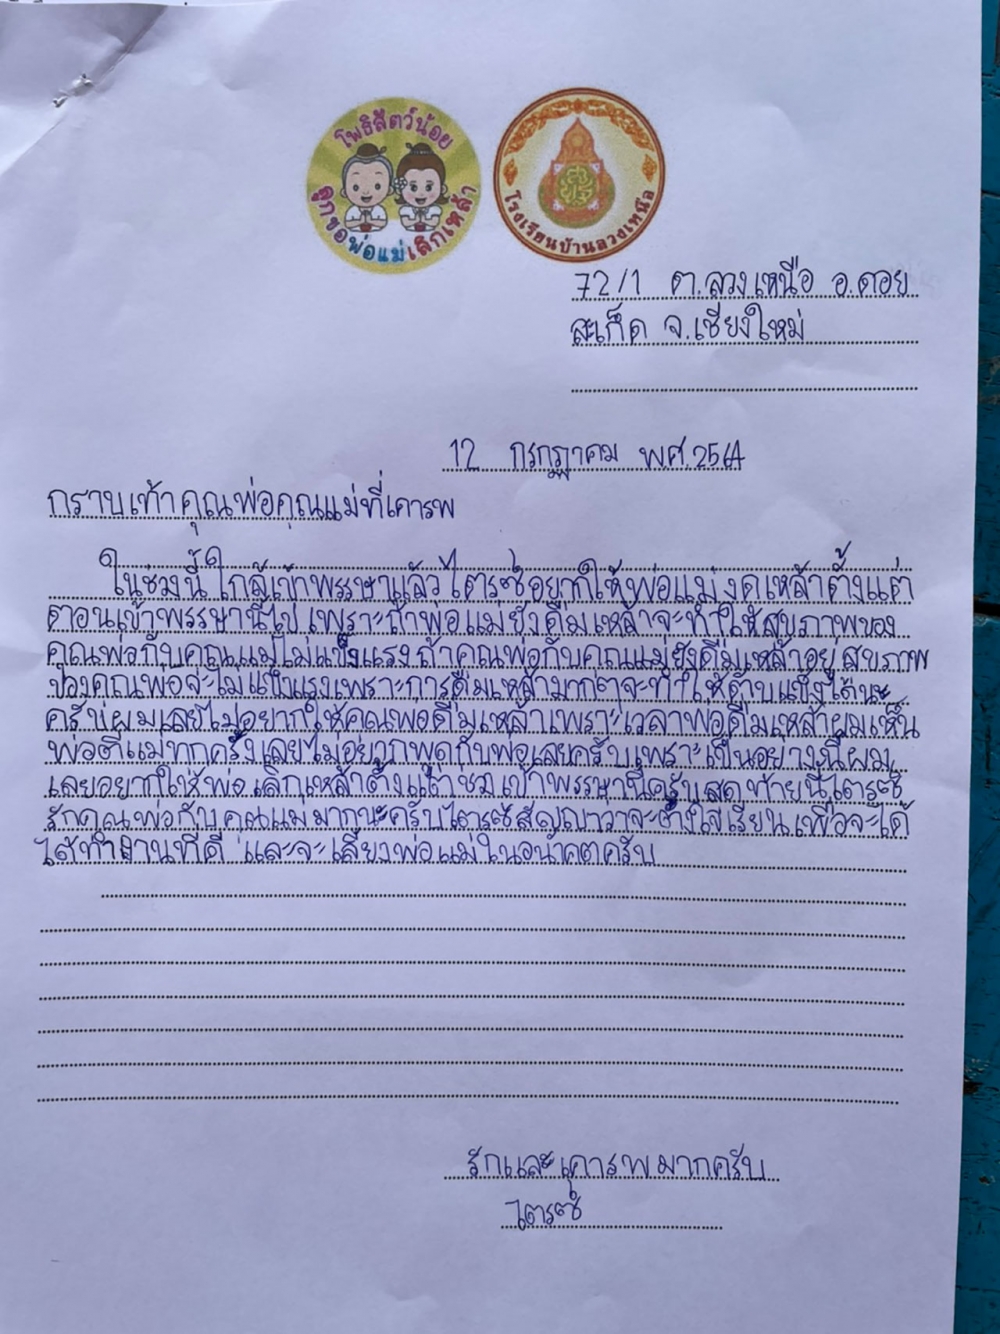 โพธิสัตว์น้อย
ลูกขอพ่อแม่เลิกเหล้า
โรงเรียนบ้านลวงเหนือ
72/1 ต.ลวงเหนือ อ.ดอย
สะเก็ด จ.เชียงใหม่
12 กรกฎาคม พศ.2564
กราบเท้าคุณพ่อคุณแม่ที่เคารพ
ในช่วงนี้ใกล้เข้าพรรษาแล้วไตรซ์อยากให้พ่อแม่งดเหล้าตั้งแต่
ตอนเข้าพรรษานี้ไป เพราะถ้าพ่อแม่ยังดื่มเหล้าจะทำให้สุขภาพของ
คุณพ่อกับคุณแม่ไม่แข็งแรง ถ้าคุณพ่อกับคุณแม่ยังดื่มเหล้าอยู่ สุขภาพ
ของคุณพ่อจะไม่แข็งแรงเพราะการดื่มเหล้ามากๆจะทำให้ตับแข็งได้นะ
ครับผมเลยไม่อยากให้คุณพ่อดื่มเหล้าเพราะเวลาพ่อดื่มเหล้าผมเห็น
พ่อตีแม่ทุกครั้งเลยไม่อยากพูดกับพ่อเลยครับเพราะเป็นอย่างนี้ผม
เลยอยากให้พ่อ เลิกเหล้าตั้งแต่ช่วงเข้าพรรษานี้ครับสุดท้ายนี้ไตรซ์
รักคุณพ่อกับคุณแม่มากนะครับไตรซ์สัญญาว่าจะตั้งใจเรียนเพื่อจะได้
ได้ทำงานที่ดี และจะเลี้ยงพ่อแม่ในอนาคตครับ
รักและเคารพมากครับ
ไตรซ์